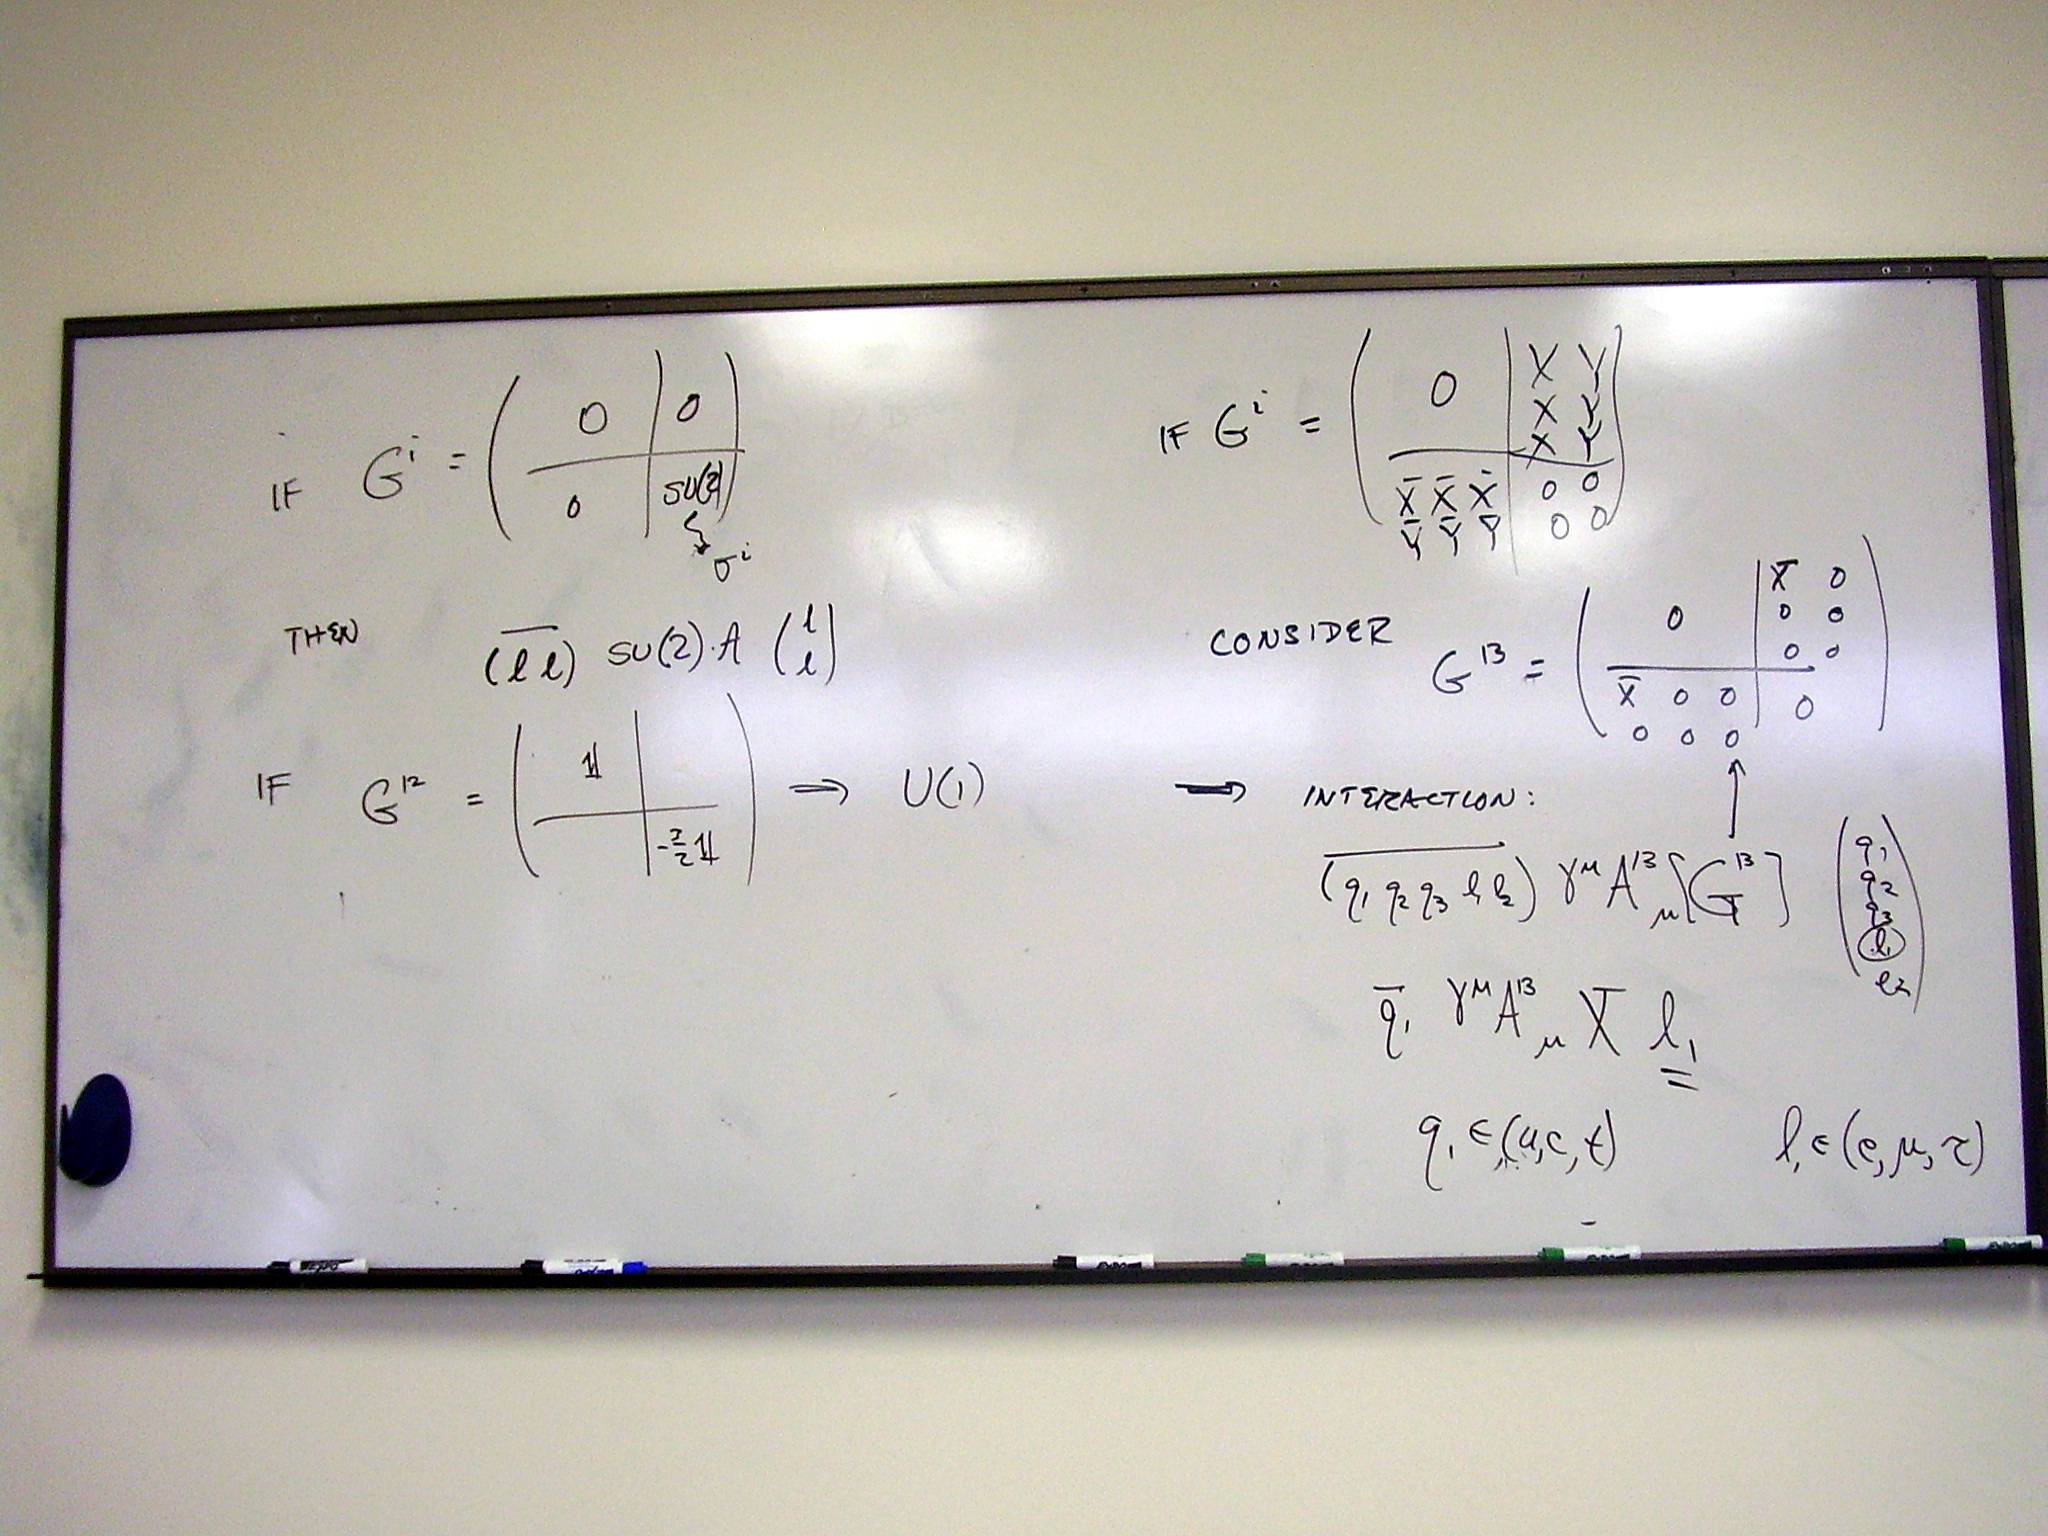 IF Gⁱ = ( 0 | 0
0 | SU(2) )
σⁱ
THEN (l̅ l̅) SU(2)·A (l
l)
IF G¹² = ( 𝟙 |
| -3/2 𝟙 ) ⇒ U(1)
IF Gⁱ = ( 0 | X Y
X Y
X Y
X̅ X̅ X̅ | 0 0
Y̅ Y̅ Y̅ | 0 0 )
CONSIDER G¹³ = ( 0 | X̅ 0
0 0
0 0
X̅ 0 0 | 0
0 0 0 )
→ INTERACTION:
(q₁ q₂ q₃ l₁ l₂) γ^μ A¹³_μ [G¹³] (q₁
q₂
q₃
l₁
l₂)
q̅₁ γ^μ A¹³_μ X̅ l₁
q₁ ∈ (u, c, t) l₁ ∈ (e, μ, τ)